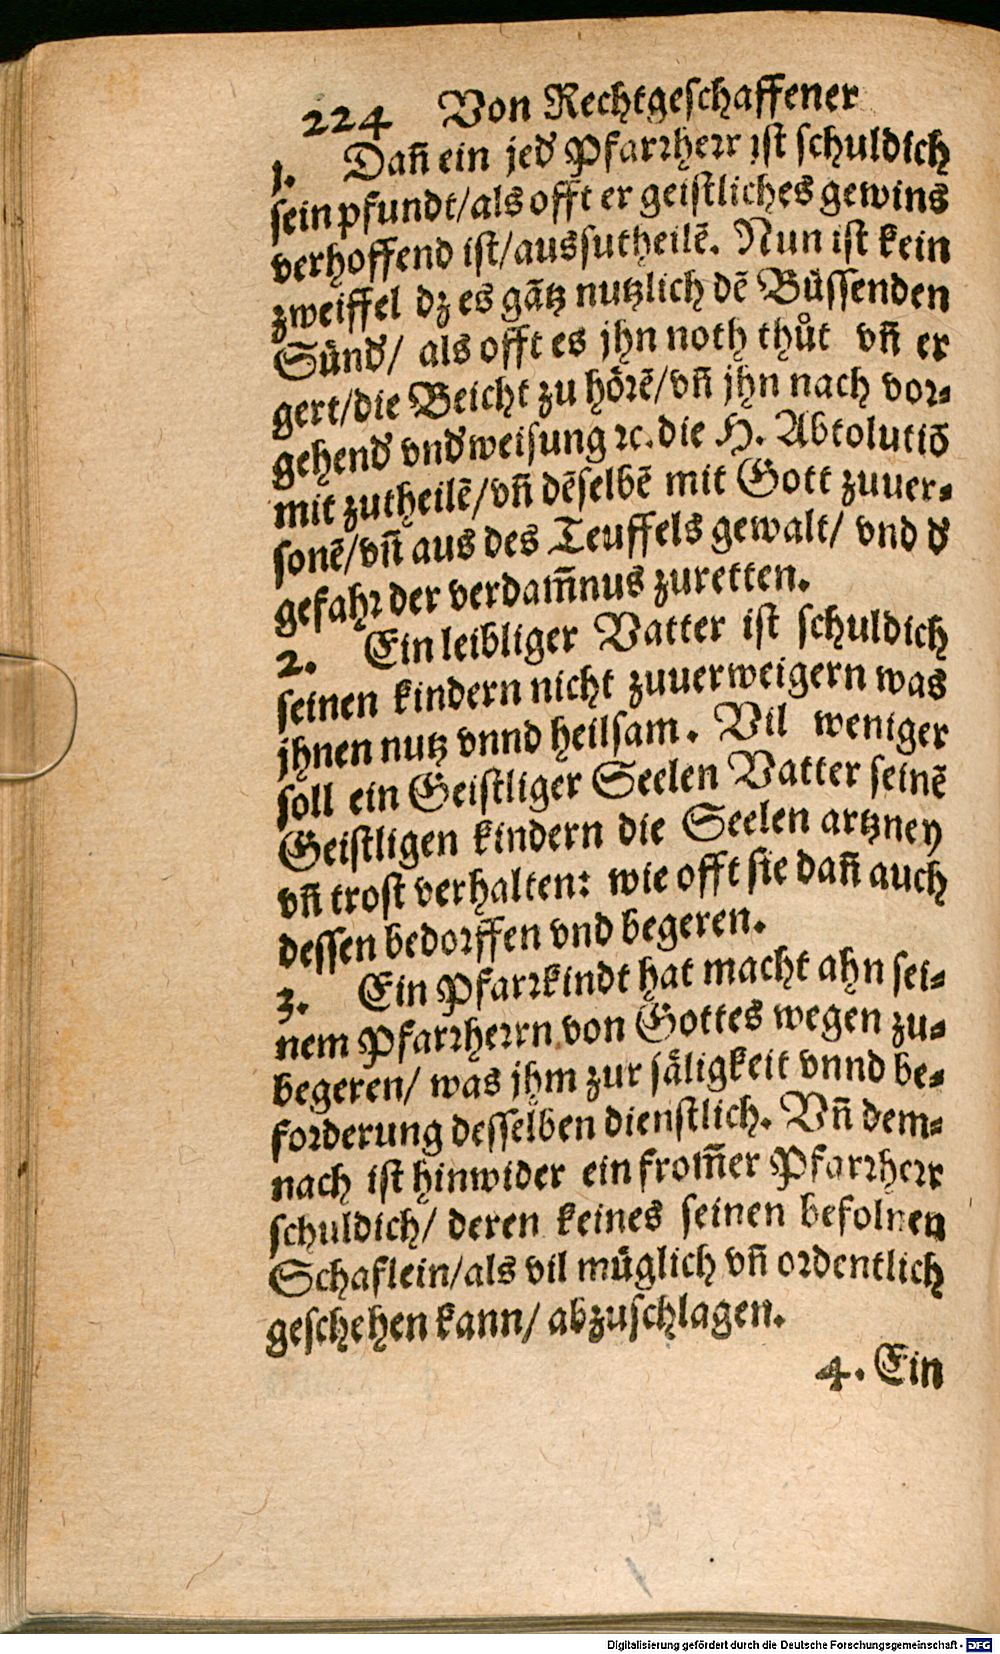 224 Von Rechtgeschaffener
1. Dañ ein jed Pfarrherr ist schuldich
sein pfundt/als offt er geistliches gewins
verhoffend ist/aussutheilẽ. Nun ist kein
zweiffel dz es gãtz nutzlich dẽ Büssenden
Sünd/ als offt es jhn noth thůt vñ er
gert/die Beicht zu hörẽ/vñ jhn nach vor-
gehend vndweisung ꝛc. die H. Abtolutiõ
mit zutheilẽ/vñ dẽselbẽ mit Gott zuuer-
sonẽ/vñ aus des Teuffels gewalt/ vnd d
gefahr der verdam̃nus zuretten.
2. Ein leibliger Vatter ist schuldich
seinen kindern nicht zuuerweigern was
jhnen nutz vnnd heilsam. Vil weniger
soll ein Geistliger Seelen Vatter seinẽ
Geistligen kindern die Seelen artzney
vñ trost verhalten: wie offt sie dañ auch
dessen bedorffen vnd begeren.
3. Ein Pfarrkindt hat macht ahn sei-
nem Pfarrherrn von Gottes wegen zu-
begeren/ was jhm zur säligkeit vnnd be-
forderung desselben dienstlich. Vñ dem-
nach ist hinwider ein from̃er Pfarrherr
schuldich/ deren keines seinen befolnen
Schaflein/als vil müglich vñ ordentlich
geschehen kann/ abzuschlagen.
4. Ein
Digitalisierung gefördert durch die Deutsche Forschungsgemeinschaft - DFG